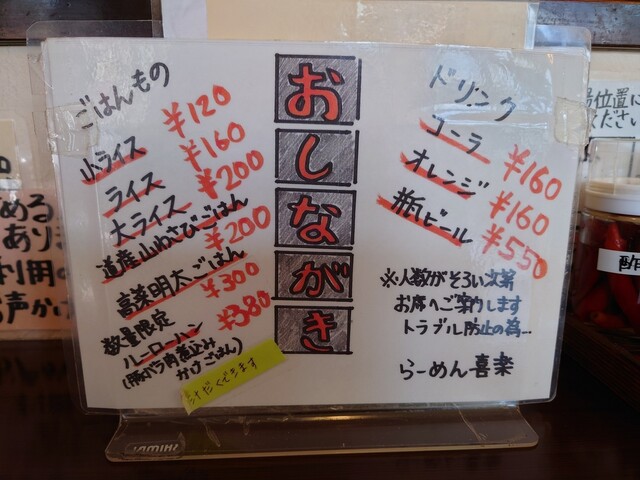 おしながき
ごはんもの
小ライス ¥120
ライス ¥160
大ライス ¥200
道産山わさびごはん ¥200
高菜明太ごはん ¥300
数量限定
ルーローハン ¥380
(豚バラ角煮込み
かけごはん)
汁だくできます
ドリンク
コーラ ¥160
オレンジ ¥160
瓶ビール ¥550
※人数がそろい次第
お席へご案内します
トラブル防止の為…
らーめん喜楽